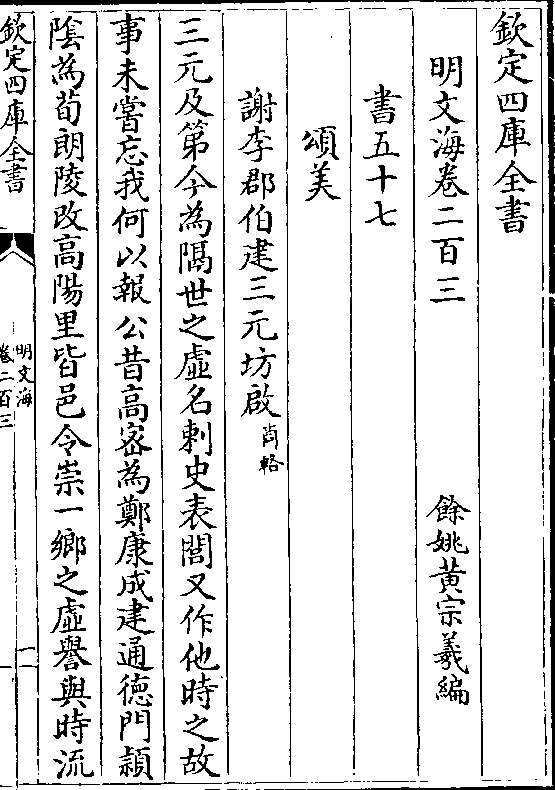 欽定四庫全書
明文海卷二百三
餘姚黄宗羲編
書五十七
頌美
謝李郡伯建三元坊啟 商輅
三元及第今為隔世之虛名刺史表閭又作他時之故
事未嘗忘我何以報公昔高密為鄭康成建通德門潁
陰為荀朗陵改高陽里皆邑令崇一鄉之虛譽與時流
欽定四庫全書
明文海
卷二百三
一